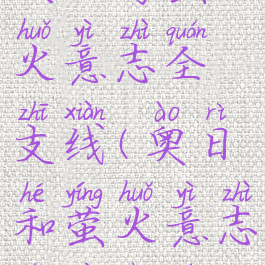 huǒ yì zhì quán
火意志全
zhī xiàn ào rì
支线(奥日
hé yíng huǒ yì zhì
和萤火意志